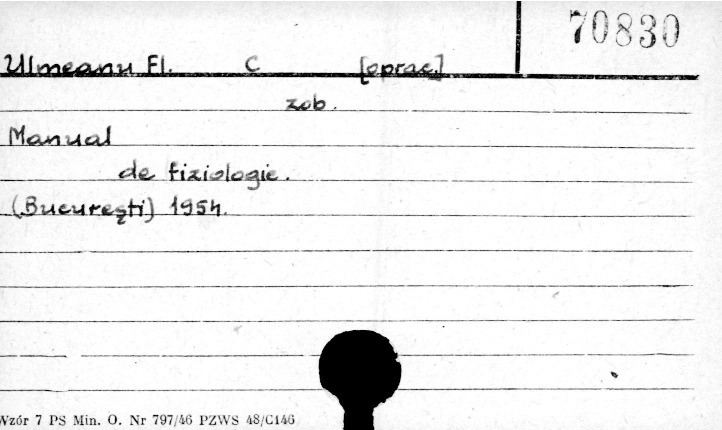 70830
Ulmeanu Fl. C [oprac.]
zob.
Manual
de fiziologie.
(București) 1954.
Wzór 7 PS Min. O. Nr 797/46 PZWS 48/C146